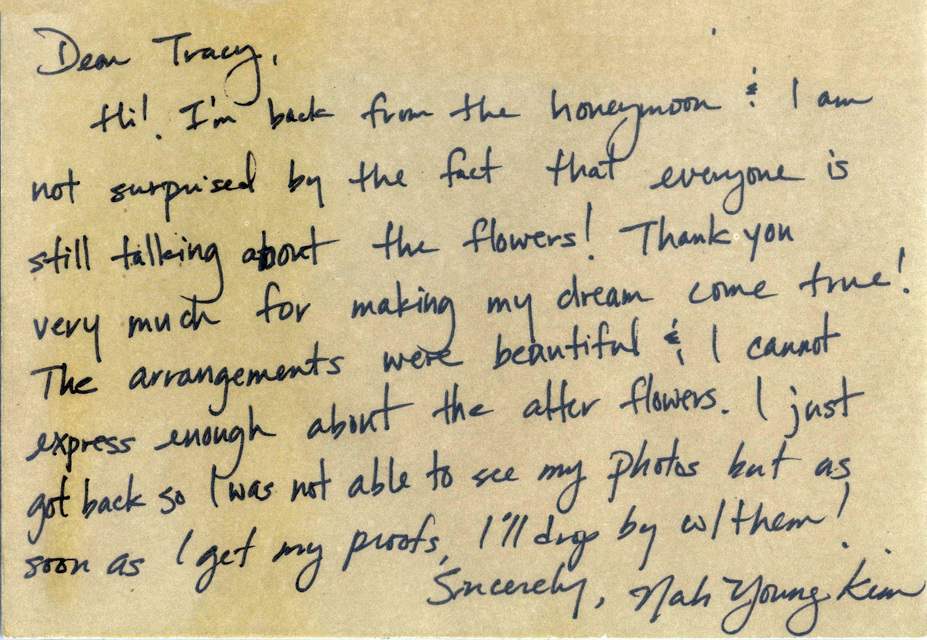 Dear Tracy,
Hi! I'm back from the honeymoon & I am
not surprised by the fact that everyone is
still talking about the flowers! Thank you
very much for making my dream come true!
The arrangements were beautiful & I cannot
express enough about the alter flowers. I just
got back so I was not able to see my photos but as
soon as I get my proofs, I'll drop by w/them!
Sincerely, Nah Young Kim